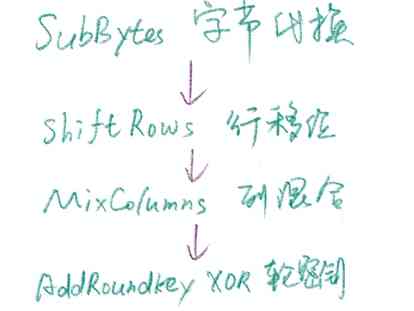 SubBytes 字节代换
ShiftRows 行移位
MixColumns 列混合
AddRoundkey XOR 轮密钥